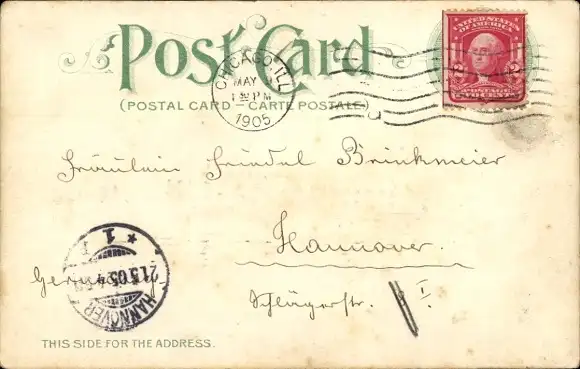 Post Card
(POSTAL CARD — CARTE POSTALE.)
CHICAGO, ILL.
MAY
1 30 PM
1905
UNITED STATES OF AMERICA
2 2
POSTAGE
TWO CENTS
Fräulein Friedel Brinkmeier
Hannover.
Germany.
Schlägerstr.
I
HANNOVER
21.5.05.4
* 1
THIS SIDE FOR THE ADDRESS.